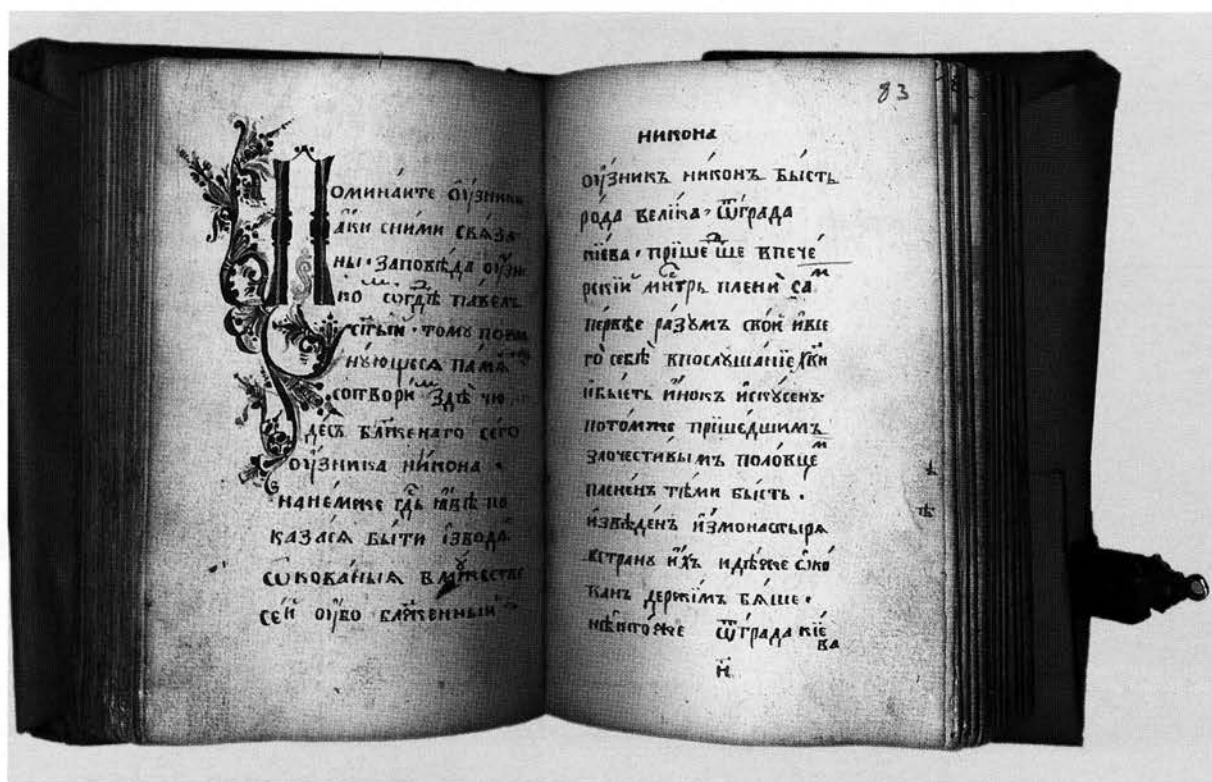 Помина́ите ѹ҆́зники
а҆́ки сни́ми свѧ́за
ны · заповѣ́да ѹ҆́зни
ко
ст҃ы́й · тому
нꙋ́ющесѧ
сотвори́м здѣ̀ чю
де́съ бл҃же́наго сего̀
ѹ҆́зника ни́кона ·
на не́мже гдⷭ҇ь ꙗ҆́вѣ по
каза́сѧ бы́ти і҆зводѧ̀
ѡ҆кова́ныѧ в мꙋ́жествѣ
се́й ѹ҆́бо бл҃же́нный
83
никона
ѹ҆́зникъ ни́конъ бы́сть
ро́да вели́ка · ѿ гра́да
кі́ева · прїше́дше в пече́
рскїй мнⷭ҇трь плени́ саⷨ
пе́рвѣе ра́зумъ сво́й и҆ все
го̀ себѐ в послꙋша́нїе хв҃и
и҆ бы́сть и҆́нокъ и҆скꙋ́сенъ ·
пото́мже прїше́дшимъ
злочести́вымъ поло́вцеⷨ
плене́нъ тѣ́ми бы́сть ·
и҆зведе́нъ и҆змонастырѧ
встранꙋ̀ и҆́хъ и҆дѣ́же ѡ҆ко́
ванъ держи́мъ бѧ́ше ·
нѣ́ктоже ѿ гра́да кі́е
ва
и҆